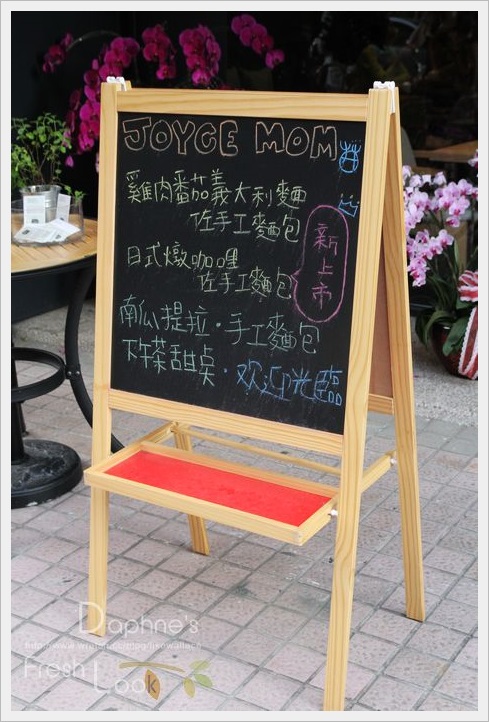 JOYCE MOM
雞肉番茄義大利麵
佐手工麵包
日式燉咖哩
佐手工麵包
新上市
南瓜提拉・手工麵包
下午茶甜桌・欢迎光臨
Daphne's
Fresh Look